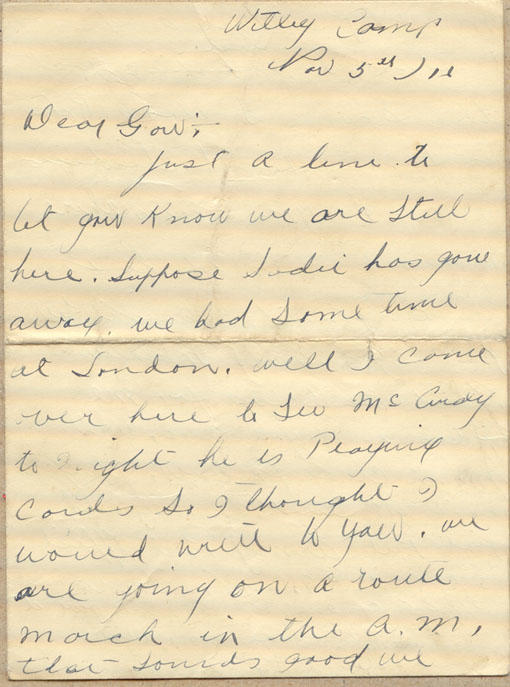 Witley Camp
Nov 5th
Dear Gow;-
Just a line to
let you Know we are Still
here. Suppose has gone
away. we had Some time
at London. well I come
over here to See Mc Curdy
to night he is Playing
Cards So I thought I
would write to you. we
are going on a route
march in the a.m,
that sounds good we